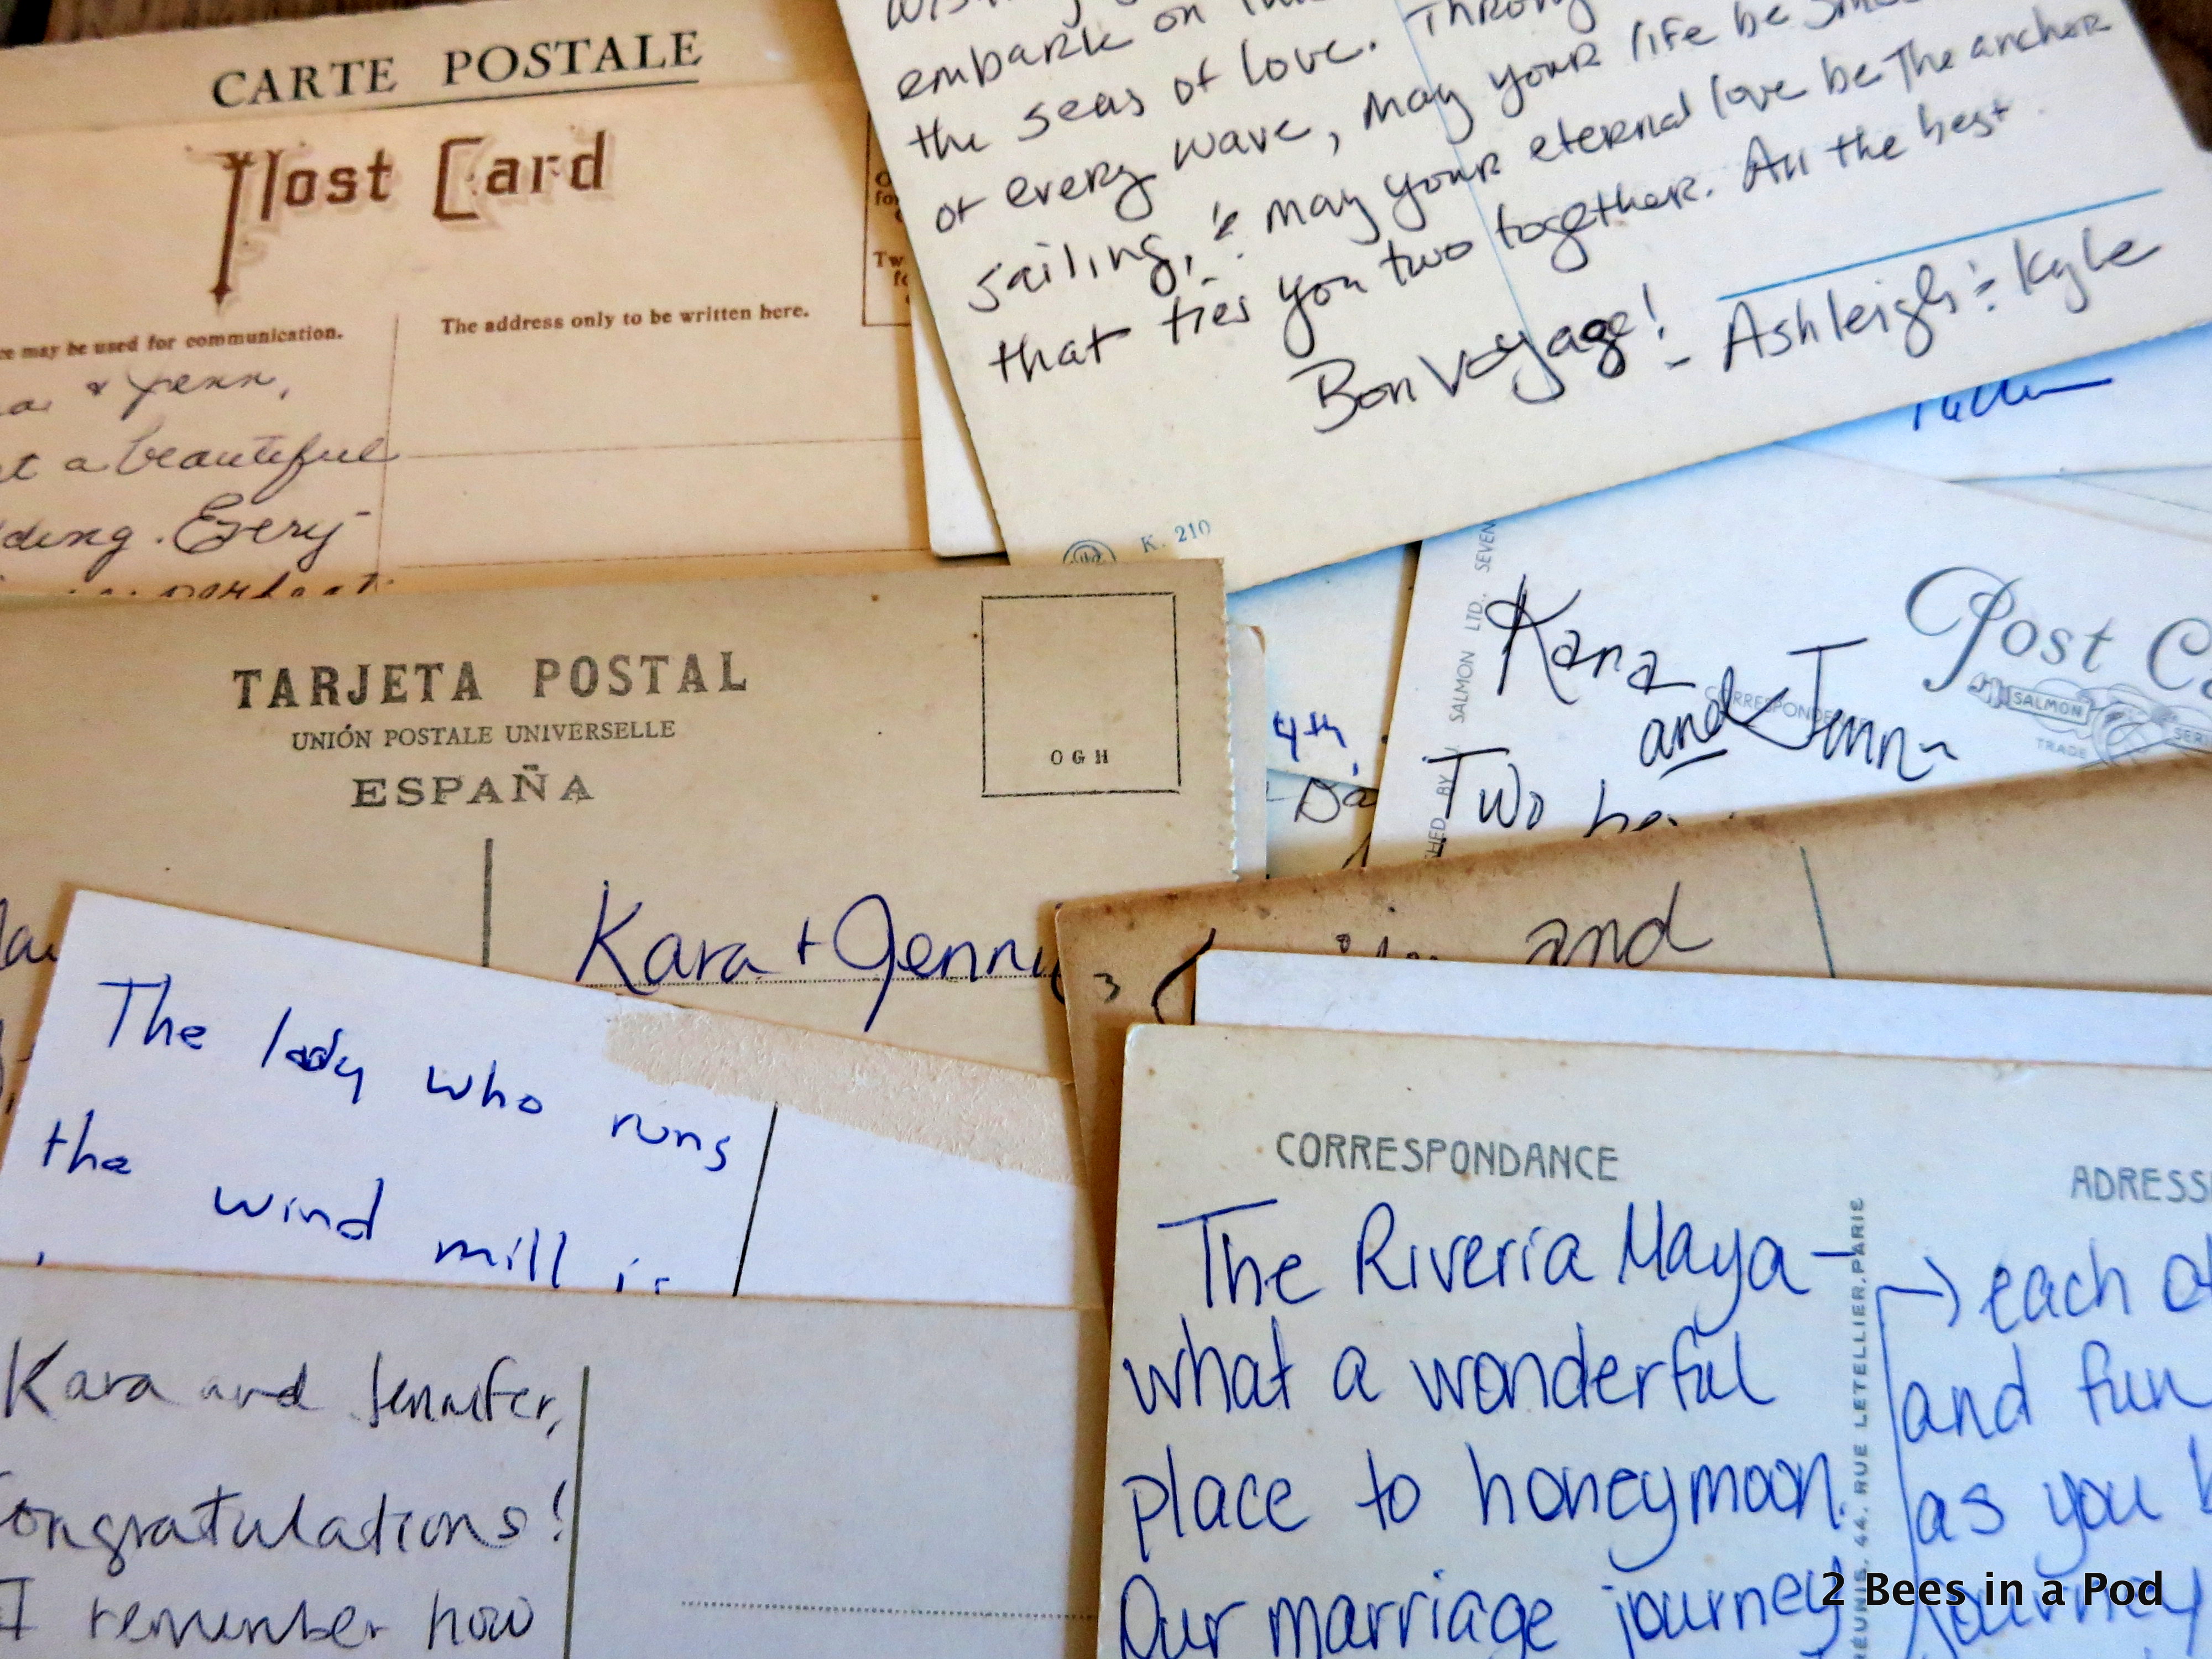 CARTE POSTALE
Post Card
ce may be used for communication.
The address only to be written here.
& Jenn,
a beautiful
Every
embark on
the seas of love. Through
of every wave, may your life be
sailing, & may your eternal love be the anchor
that ties you two together. All the best
Bon Voyage! - Ashleigh & Kyle
K. 210
TARJETA POSTAL
UNIÓN POSTALE UNIVERSELLE
ESPAÑA
OGH
Kara + Jenny
4th,
SALMON LTD., SEVEN
Kara
and Jenn
Two
Post C
CORRESPONDE
SALMON
TRADE
SERI
and
The lady who runs
the wind mill is
Kara and Jennifer,
Congratulations!
I remember how
CORRESPONDANCE
ADRESS
The Riveria Maya -
what a wonderful
place to honeymoon.
Our marriage journey
RÉUNIS, 44, RUE LETELLIER, PARIS
each
and fun
as you
journey
2 Bees in a Pod